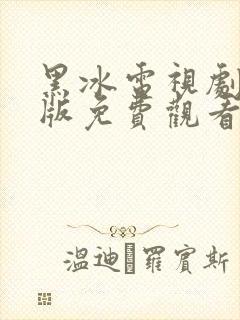 黑冰電視劇
版免費觀看
溫迪·羅賓斯